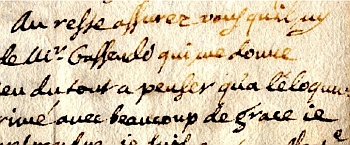 Au reste assurez vous qu'il n'y
de Mr. Gassendi qui me donne
rien du tout a penser qu'a l'éloquen
rimé avec beaucoup de grace ie